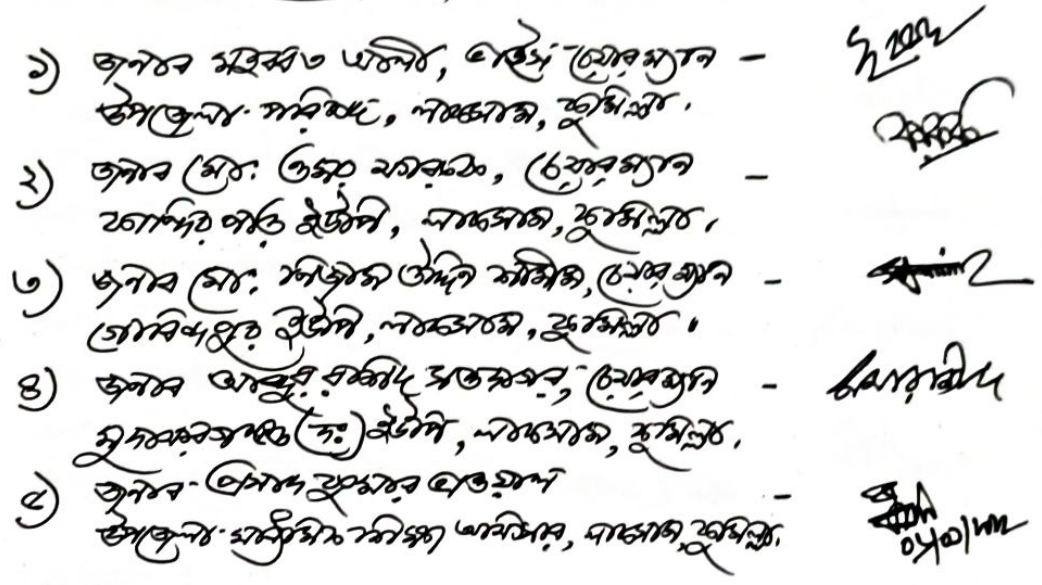 ১) জনাব মহব্বত আলী, ভাইস-চেয়ারম্যান -
উপজেলা পরিষদ, লাকসাম, কুমিল্লা।
২) জনাব মো: ওমর ফারুক, চেয়ারম্যান -
কান্দিরপাড় ইউপি, লাকসাম, কুমিল্লা।
৩) জনাব মো: নিজাম উদ্দিন শামীম, চেয়ারম্যান -
গোবিন্দপুর ইউপি, লাকসাম, কুমিল্লা।
৪) জনাব আব্দুর রশিদ সওদাগর, চেয়ারম্যান -
মুদাফরগঞ্জ (দঃ) ইউপি, লাকসাম, কুমিল্লা।
৫) জনাব প্রসাদ কুমার ভাওয়াল -
উপজেলা মাধ্যমিক শিক্ষা অফিসার, লাকসাম, কুমিল্লা।